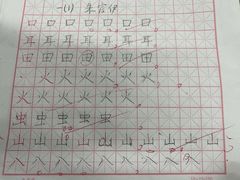 一(1) 朱宫伊
口 口 口 口 口 口 口
耳 耳 耳 耳 耳 耳 耳
田 田 田 田 田 田 田
火 火 火 火 火 火
火 火 火 火 火 火
虫 虫 虫 虫 虫
山 山 山 山 山 山 山 山 山
八 八 八 八 八 八 八 八